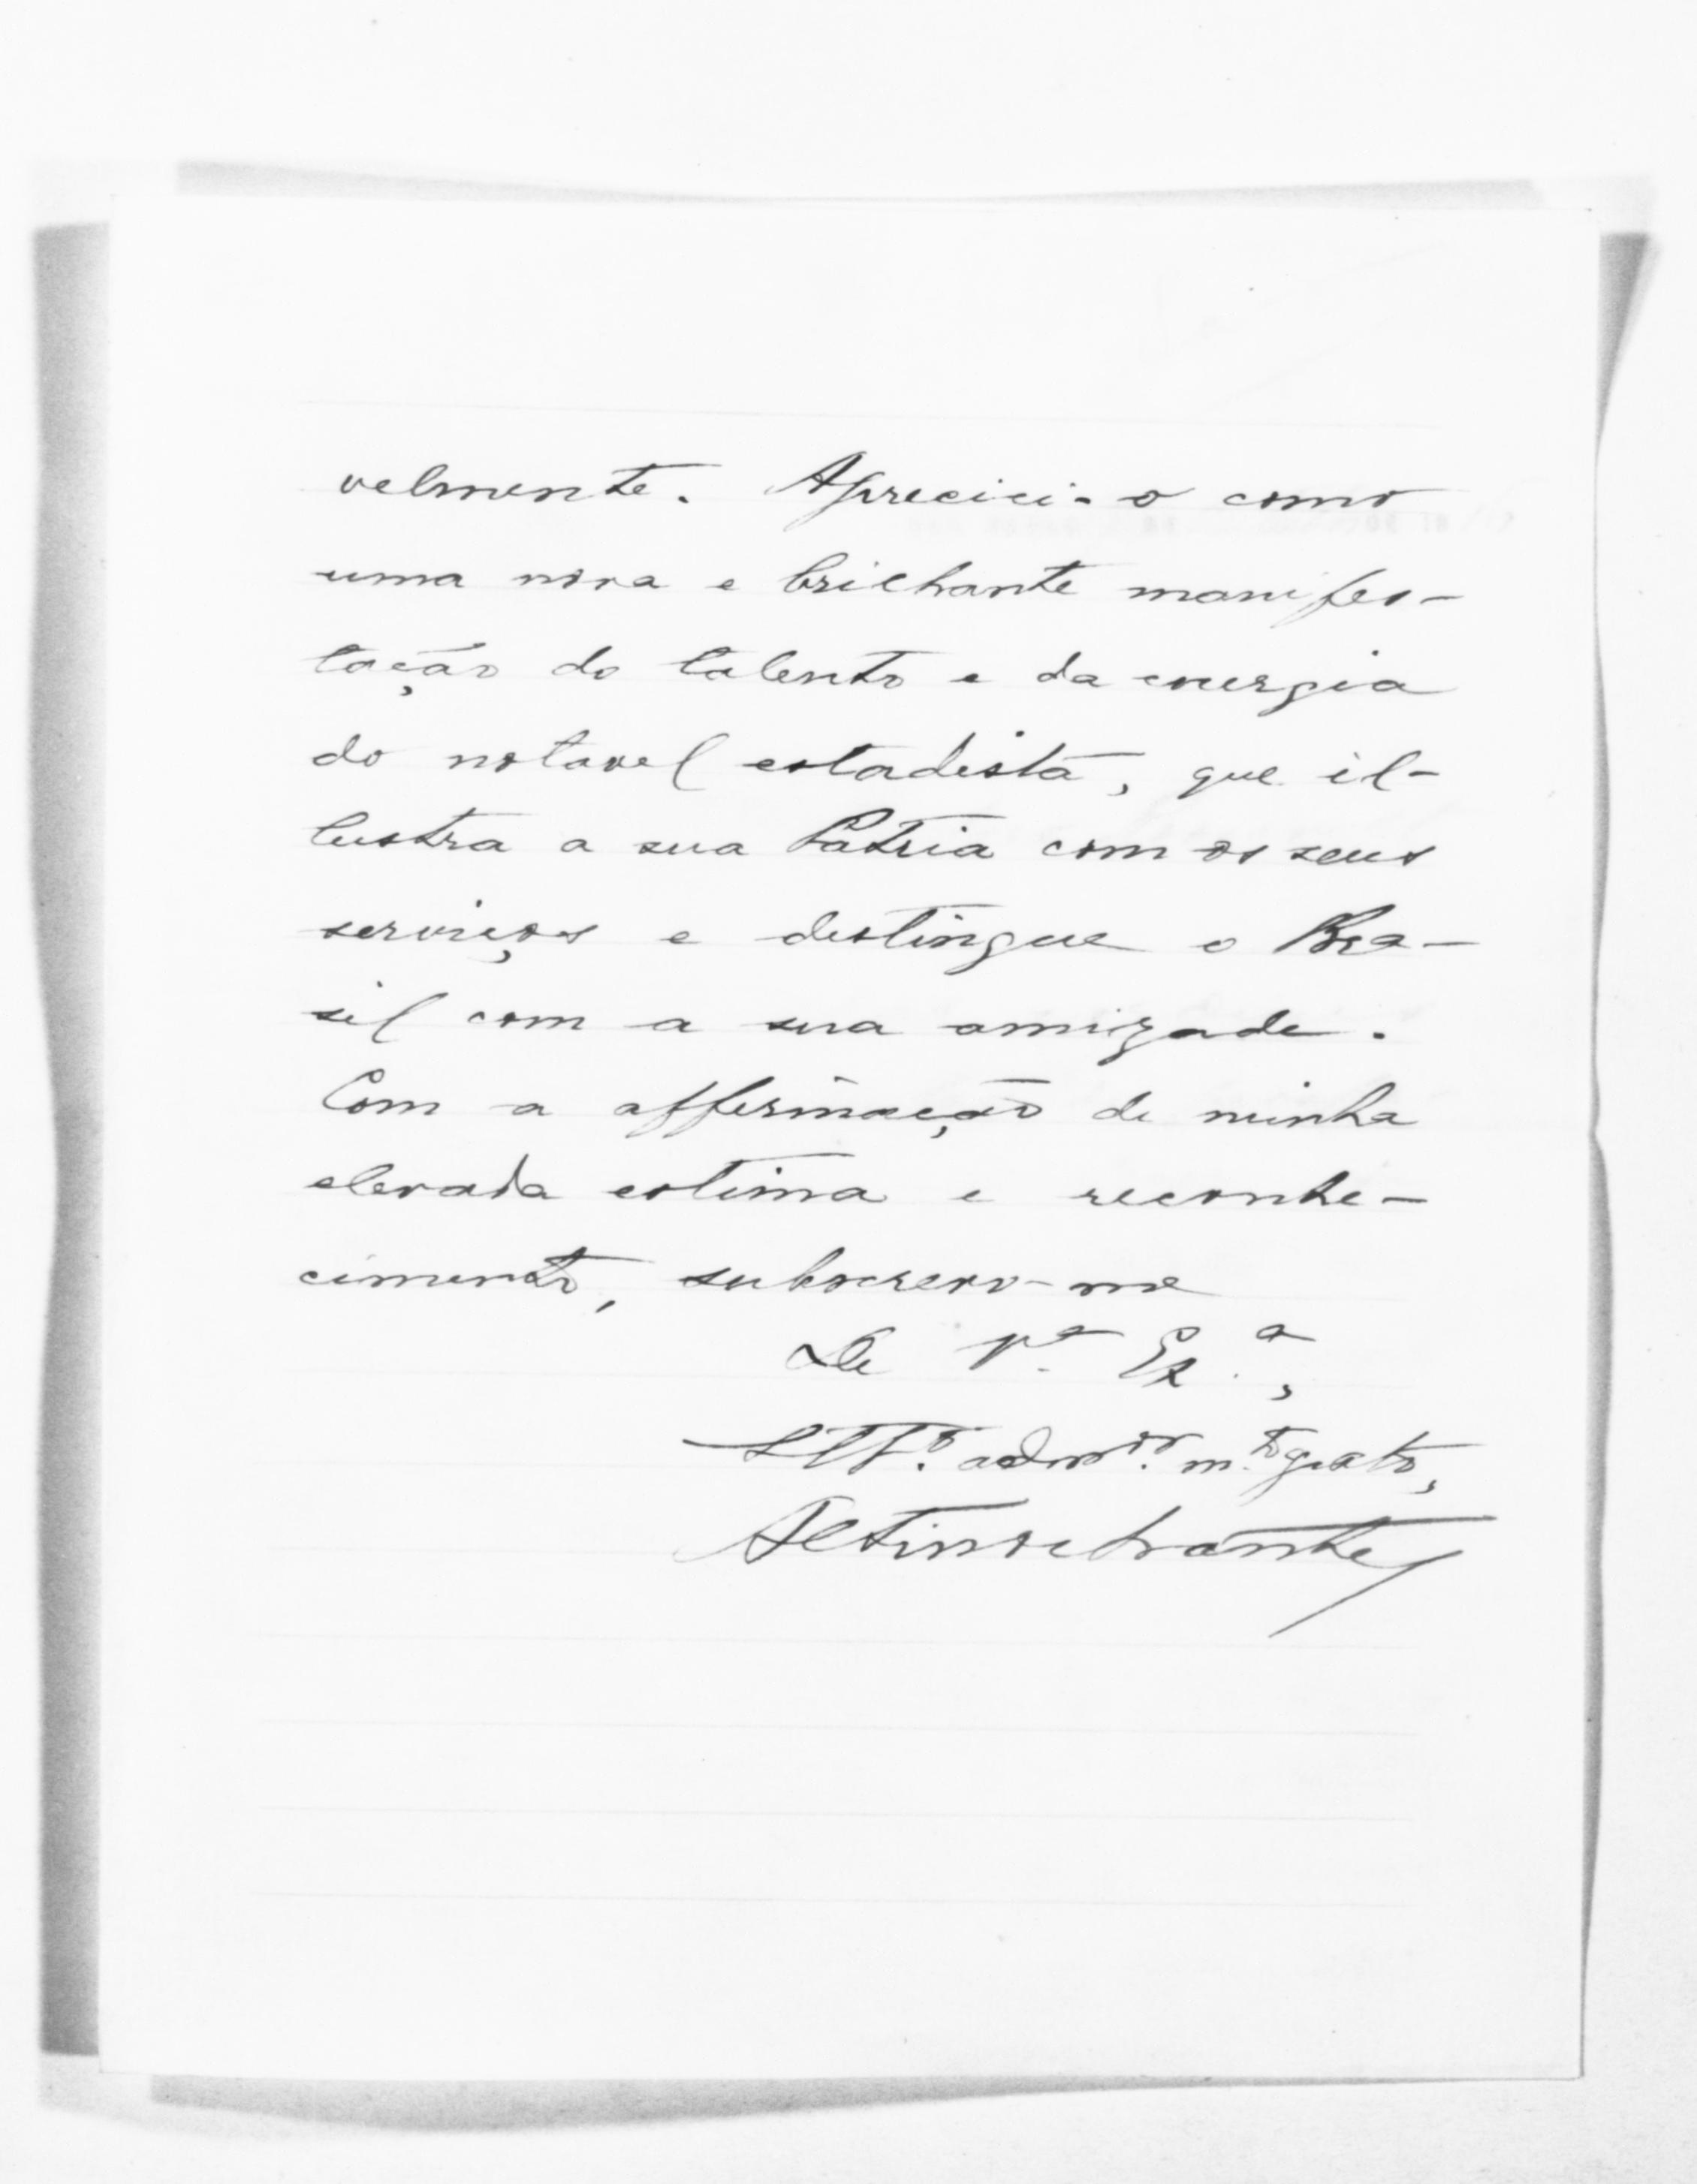 velmente. Apreciei-o como
uma nova e brilhante manifes-
tação do talento e da energia
do notavel estadista, que il-
lustra a sua Patria com os seus
serviços e distingue o Bra-
sil com a sua amizade.
Com a affirmação de minha
elevada estima e reconhe-
cimento, subscrevo-me
De V.ª Ex.ª,
adm.or m.to grato,
Altino Arantes